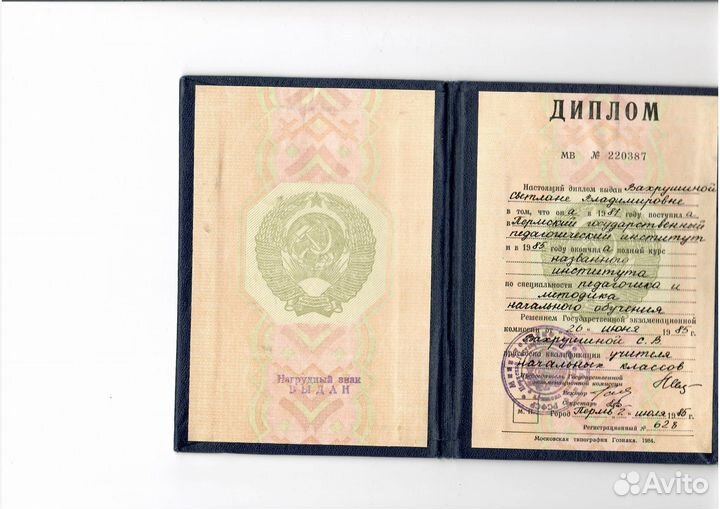 Нагрудный знак
ВЫДАН
ДИПЛОМ
МВ № 220387
Настоящий диплом выдан Вахрушиной
Светлане Владимировне
в том, что он а в 1981 году поступил а
в Пермский государственный
педагогический институт
и в 1985 году окончил а полный курс
названного
института
по специальности педагогика и
методика
начального обучения
Решением Государственной экзаменационной
комиссии от 26 июня 1985 г.
Вахрушиной С. В
присвоена квалификация учителя
начальных классов
Председатель Государственной
экзаменационной комиссии
Ректор
Секретарь
М. П. Город Пермь 2 июля 1985 г.
Регистрационный № 628
Московская типография Гознака. 1984.
Avito